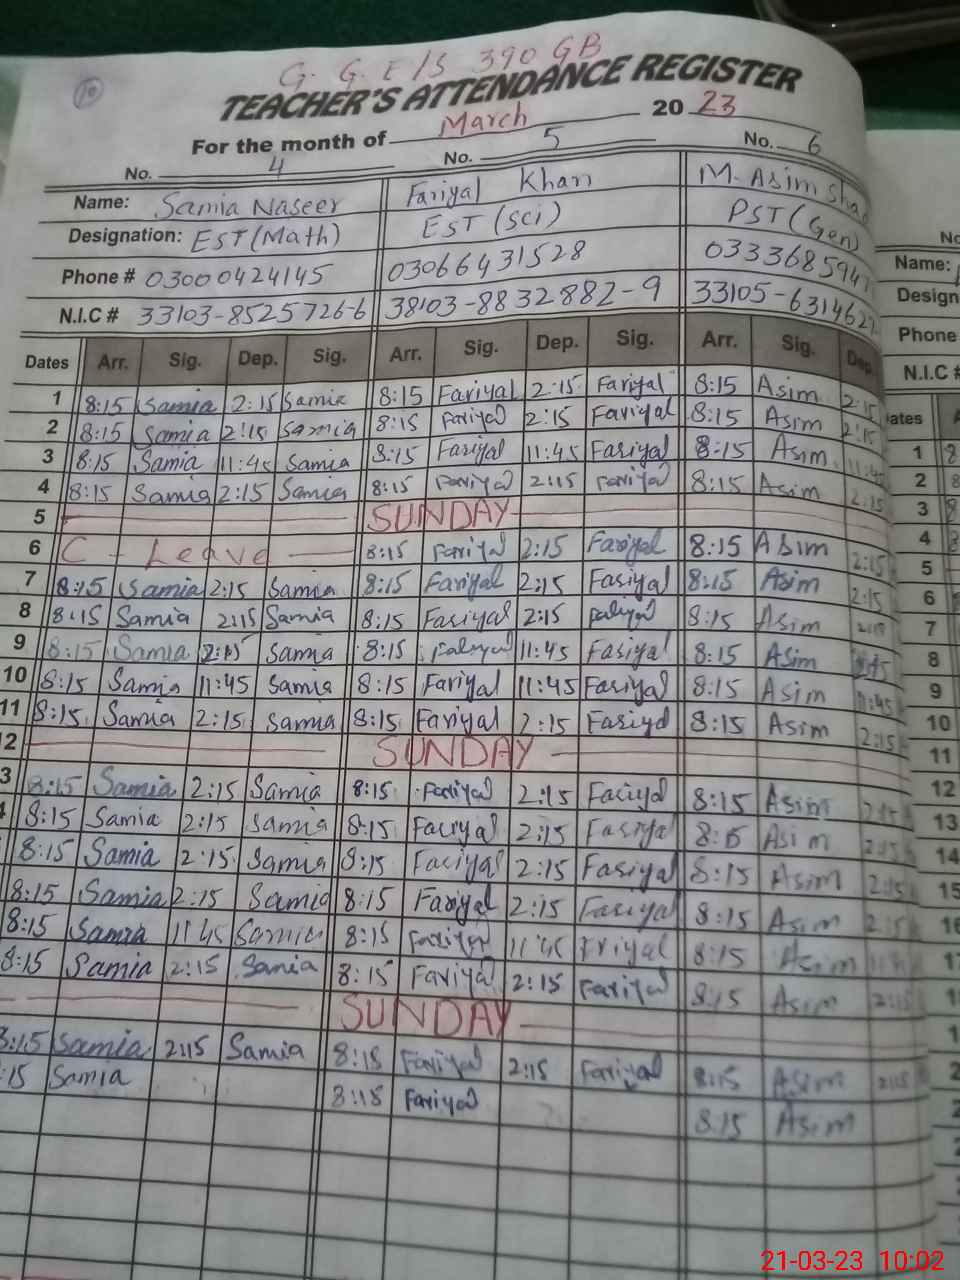 10
G. G. E/S 390 GB
TEACHER'S ATTENDANCE REGISTER
For the month of March 20 23
No. 4 No. 5 No. 6
Name: Samia Naseer Fariyal Khan M. Asim
Designation: EST (Math) EST (Sci) PST (Gen)
Phone # 03000424145 03066431528
N.I.C # 33103-8525726-6 38103-8832882-9
Dates Arr. Sig. Dep. Sig. Arr. Sig. Dep. Sig. Arr. Sig. Dep.
1 8:15 Samia 2:15 Samia 8:15 Fariyal 2:15 Fariyal 8:15 Asim 2:15
2 8:15 Samia 2:15 Samia 8:15 Fariyal 2:15 Fariyal 8:15 Asim 2:15
3 8:15 Samia 11:45 Samia 8:15 Fariyal 11:45 Fariyal 8:15 Asim 11:45
4 8:15 Samia 2:15 Samia 8:15 Fariyal 2:15 Fariyal 8:15 Asim 2:15
5 SUNDAY
6 C - Leave 8:15 Fariyal 2:15 Fariyal 8:15 Asim 2:15
7 8:15 Samia 2:15 Samia 8:15 Fariyal 2:15 Fariyal 8:15 Asim 2:15
8 8:15 Samia 2:15 Samia 8:15 Fariyal 2:15 Fariyal 8:15 Asim
9 8:15 Samia 2:15 Samia 8:15 Fariyal 11:45 Fariyal 8:15 Asim
10 8:15 Samia 11:45 Samia 8:15 Fariyal 11:45 Fariyal 8:15 Asim 11:45
11 8:15 Samia 2:15 Samia 8:15 Fariyal 2:15 Fariyal 8:15 Asim 2:15
2 SUNDAY
3 8:15 Samia 2:15 Samia 8:15 Fariyal 2:15 Fariyal 8:15 Asim 2:15
8:15 Samia 2:15 Samia 8:15 Fariyal 2:15 Fariyal 8:15 Asim 2:15
8:15 Samia 2:15 Samia 8:15 Fariyal 2:15 Fariyal 8:15 Asim 2:15
8:15 Samia 2:15 Samia 8:15 Fariyal 2:15 Fariyal 8:15 Asim 2:15
8:15 Samia 11:45 Samia 8:15 Fariyal 11:45 Friyal 8:15 Asim
8:15 Samia 2:15 Samia 8:15 Fariyal 2:15 Fariyal 8:15 Asim 2:15
SUNDAY
8:15 Samia 2:15 Samia 8:15 Fariyal 2:15 Fariyal 8:15 Asim 2:15
:15 Samia 8:15 Fariyal 8:15 Asim
Name:
Design
Phone
N.I.C #
ates
1
2
3
4
5
6
7
8
9
10
11
12
13
14
15
21-03-23 10:02